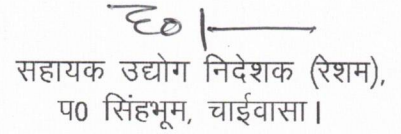 ह0।
सहायक उद्योग निदेशक (रेशम),
प0 सिंहभूम, चाईवासा।